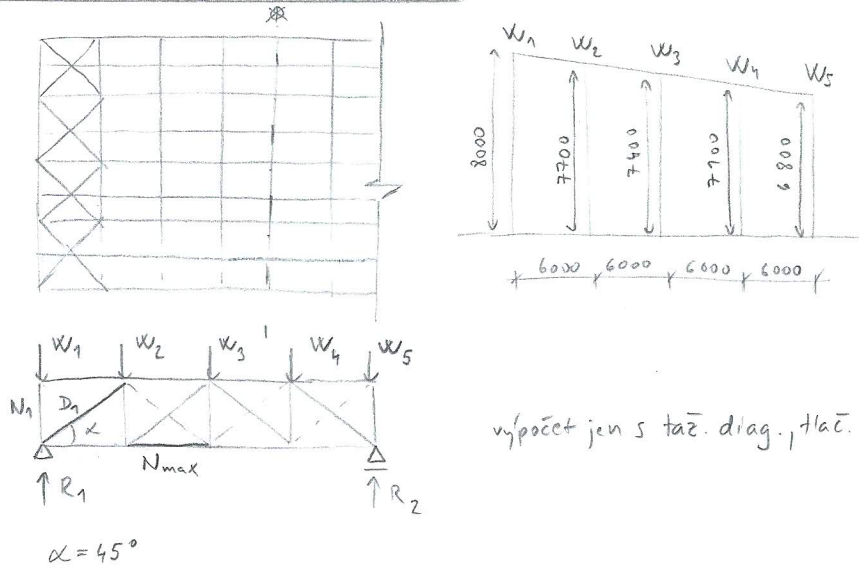 W1 W2 W3 W4 W5
8000 7700 7400 7100 6800
6000 6000 6000 6000
W1 W2 W3 W4 W5
N1 D1 α
Nmax
R1 R2
výpočet jen s taž. diag., tlač.
α = 45°